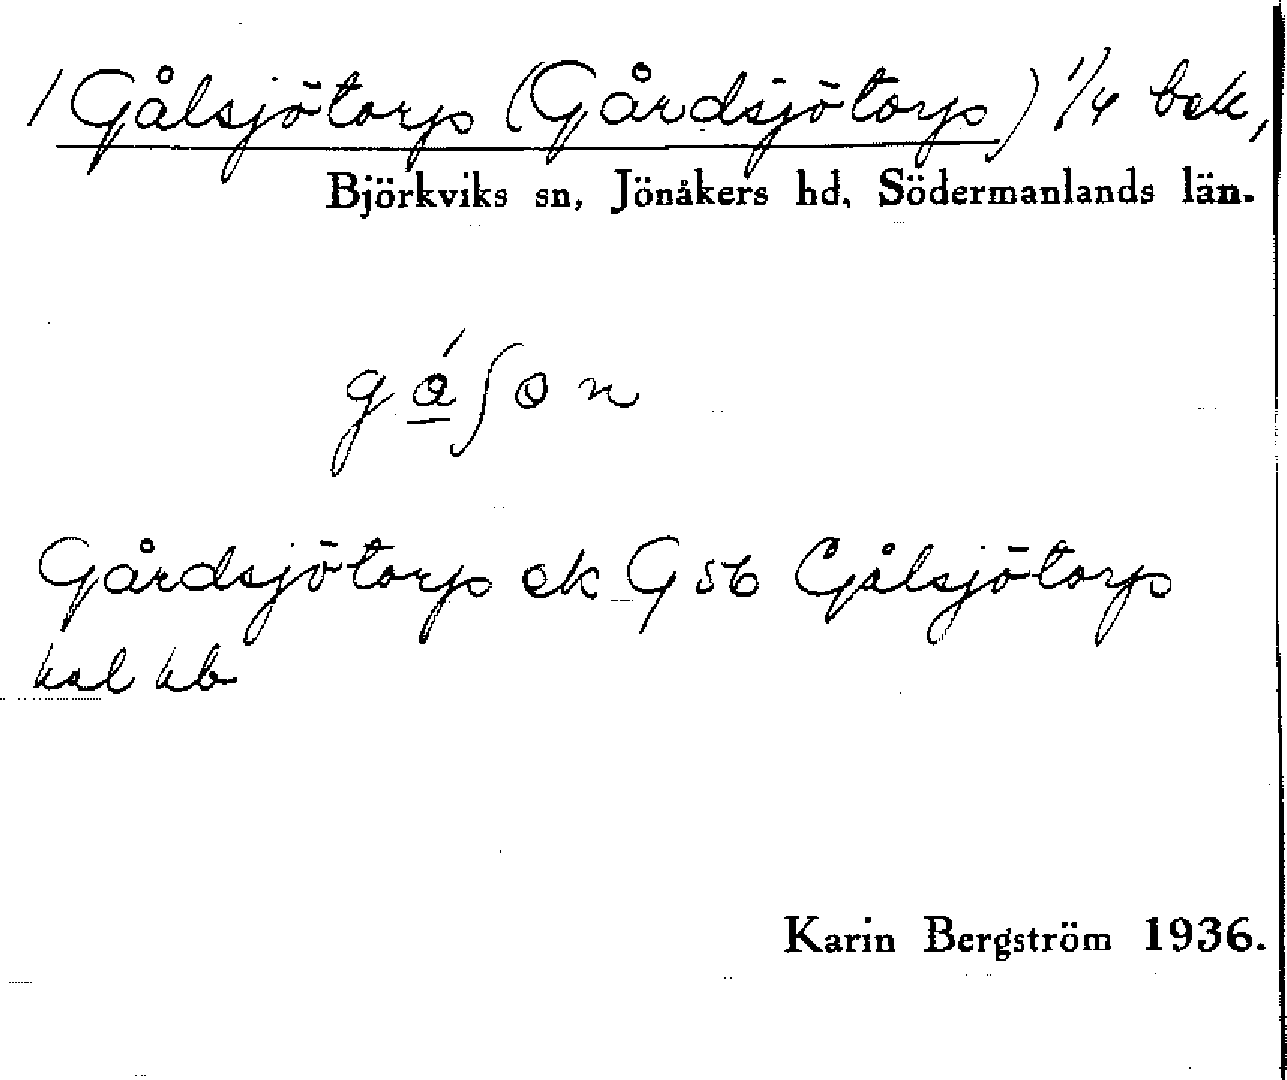 1 Gålsjötorp (Gårdsjötorp) 1/4 bsk,
Björkviks sn, Jönåkers hd, Södermanlands län.
Gårdsjötorp ek G 56 Gålsjötorp
kal kb
Karin Bergström 1936.